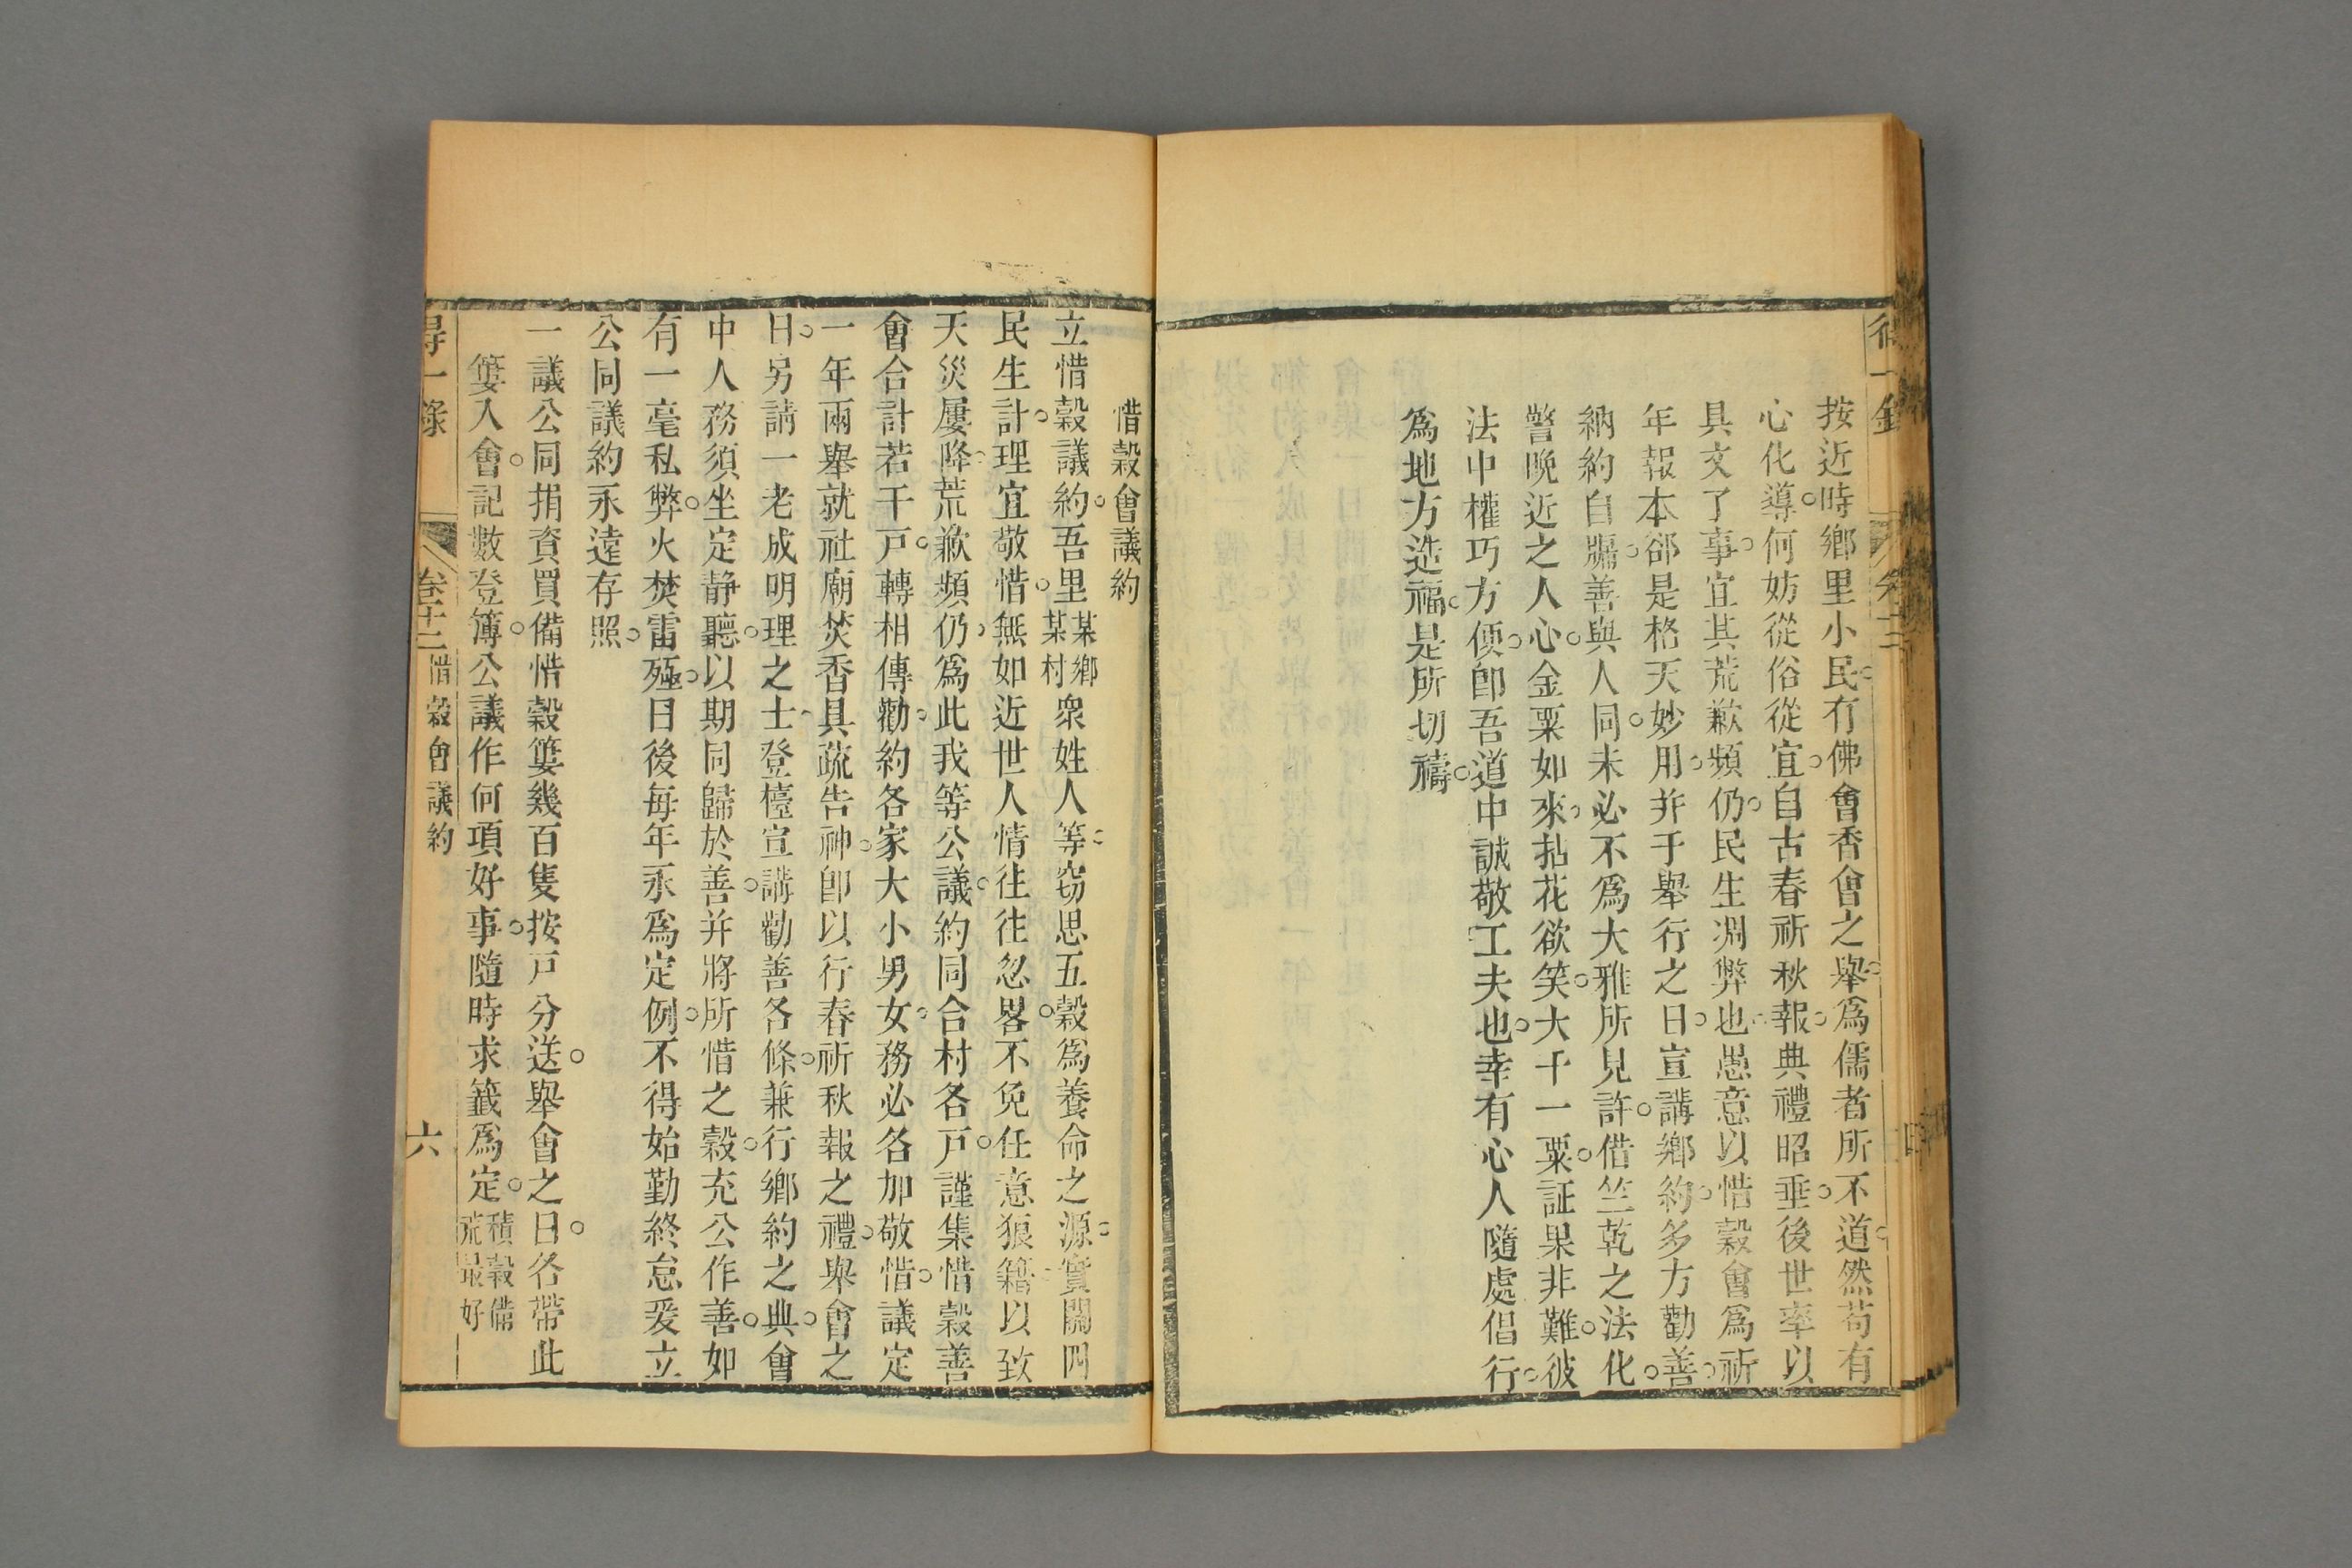 按近時鄉里小民有佛會香會之舉爲儒者所不道然苟有
心化導何妨從俗從宜自古春祈秋報典禮昭垂後世率以
具文了事宜其荒歉頻仍民生凋弊也愚意以惜穀會爲祈
年報本卻是格天妙用并于舉行之日宣講鄉約多方勸善
納約自牖善與人同未必不爲大雅所見許借竺乾之法化
警晚近之人心金粟如來拈花欲笑大千一粟証果非難彼
法中權巧方便卽吾道中誠敬工夫也幸有心人隨處倡行
爲地方造福是所切禱
惜穀會議約
立惜穀議約吾里某鄉某村衆姓人等窃思五穀爲養命之源實關四
民生計理宜敬惜無如近世人情往往忽畧不免任意狼籍以致
天災屢降荒歉頻仍爲此我等公議約同合村各戸謹集惜穀善
會合計若干戸轉相傳勸約各家大小男女務必各加敬惜議定
一年兩舉就社廟焚香具疏告神卽以行春祈秋報之禮舉會之
日另請一老成明理之士登檯宣講勸善各條兼行鄉約之典會
中人務須坐定静聽以期同歸於善并將所惜之穀充公作善如
有一毫私弊火焚雷殛日後每年永爲定例不得始勤終怠爰立
公同議約永遠存照
一議公同捐資買備惜穀簍幾百隻按戸分送舉會之日各帶此
簍入會記數登簿公議作何項好事隨時求籤爲定積穀備荒最好
得一錄 卷十二 惜穀會議約 六